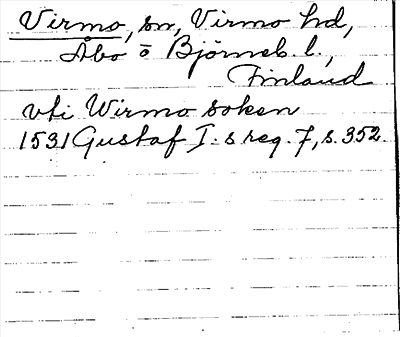 Virmo, sn, Virmo hd,
Åbo o Björneb. l.,
Finland
vti Wirmo soken
1531 Gustaf I:s reg. 7, s. 352.